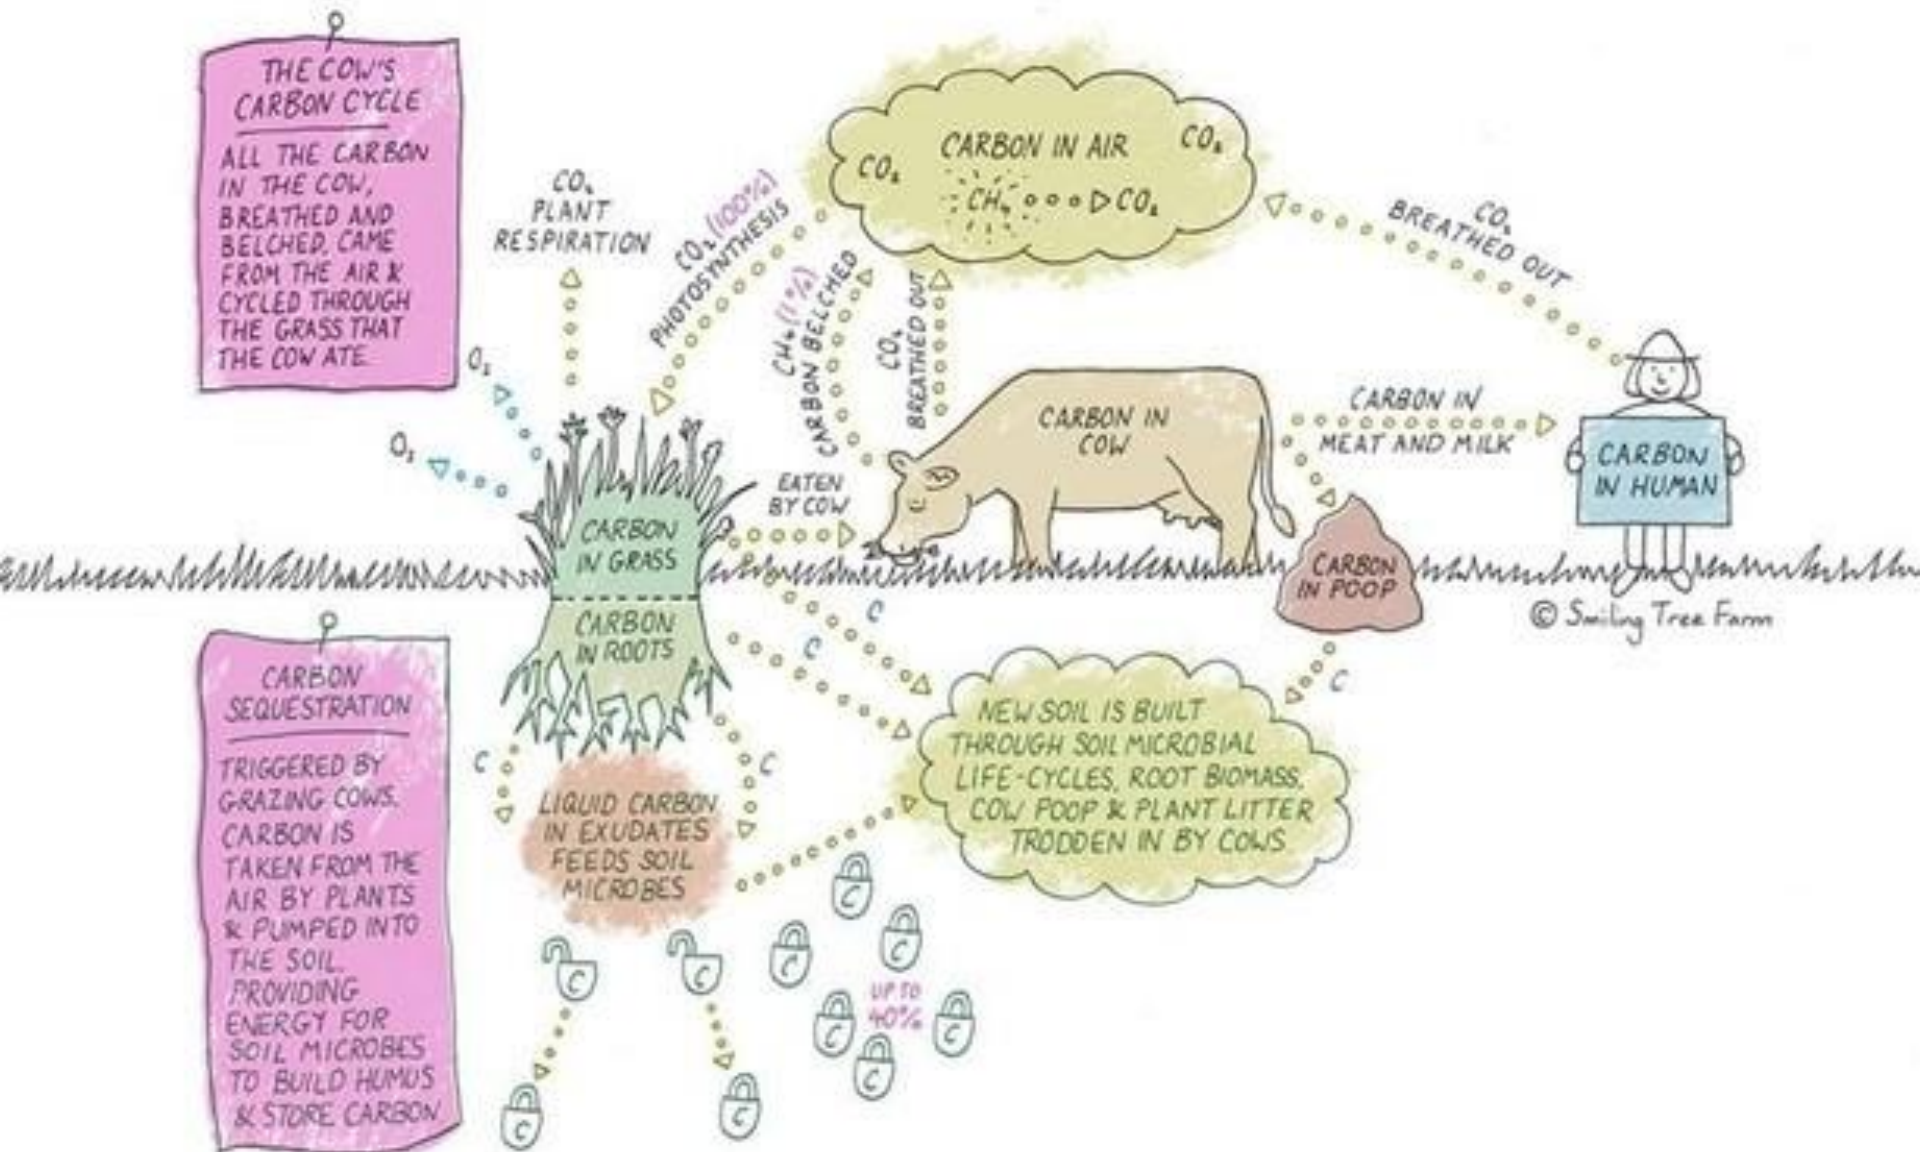 THE COW'S
CARBON CYCLE
ALL THE CARBON
IN THE COW,
BREATHED AND
BELCHED, CAME
FROM THE AIR &
CYCLED THROUGH
THE GRASS THAT
THE COW ATE.
CO₂
PLANT
RESPIRATION
O₂
O₂
CO₂ (100%)
PHOTOSYNTHESIS
CH₄ (1%)
CARBON BELCHED
CO₂
BREATHED OUT
CARBON IN AIR
CO₂
CO₂
CH₄ CO₂
CO₂
BREATHED OUT
CARBON IN
COW
CARBON IN
MEAT AND MILK
CARBON
IN HUMAN
EATEN
BY COW
CARBON
IN GRASS
CARBON
IN POOP
© Smiling Tree Farm
CARBON
IN ROOTS
C
C
C
C
C
CARBON
SEQUESTRATION
TRIGGERED BY
GRAZING COWS.
CARBON IS
TAKEN FROM THE
AIR BY PLANTS
& PUMPED INTO
THE SOIL.
PROVIDING
ENERGY FOR
SOIL MICROBES
TO BUILD HUMUS
& STORE CARBON
LIQUID CARBON
IN EXUDATES
FEEDS SOIL
MICROBES
NEW SOIL IS BUILT
THROUGH SOIL MICROBIAL
LIFE-CYCLES, ROOT BIOMASS,
COW POOP & PLANT LITTER
TRODDEN IN BY COWS
C
C
C
C
C
UP TO
40%
C
C
C
C
C